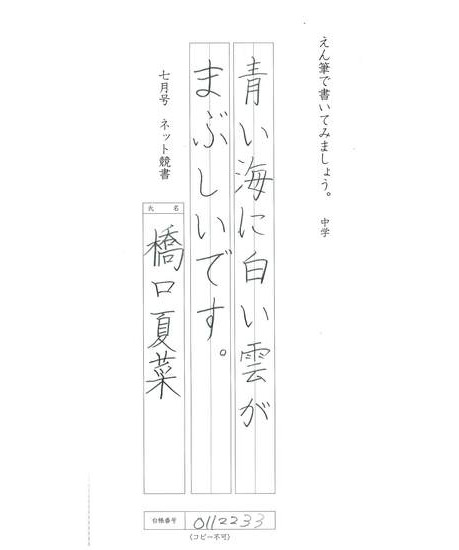 えん筆で書いてみましょう。 中学
青い海に白い雲が
まぶしいです。
七月号 ネット競書
氏名
橋口夏菜
台帳番号 0112233
(コピー不可)